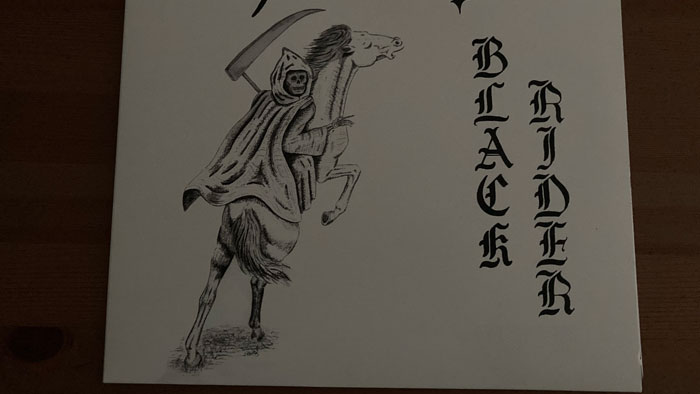 BLACK
RIDER